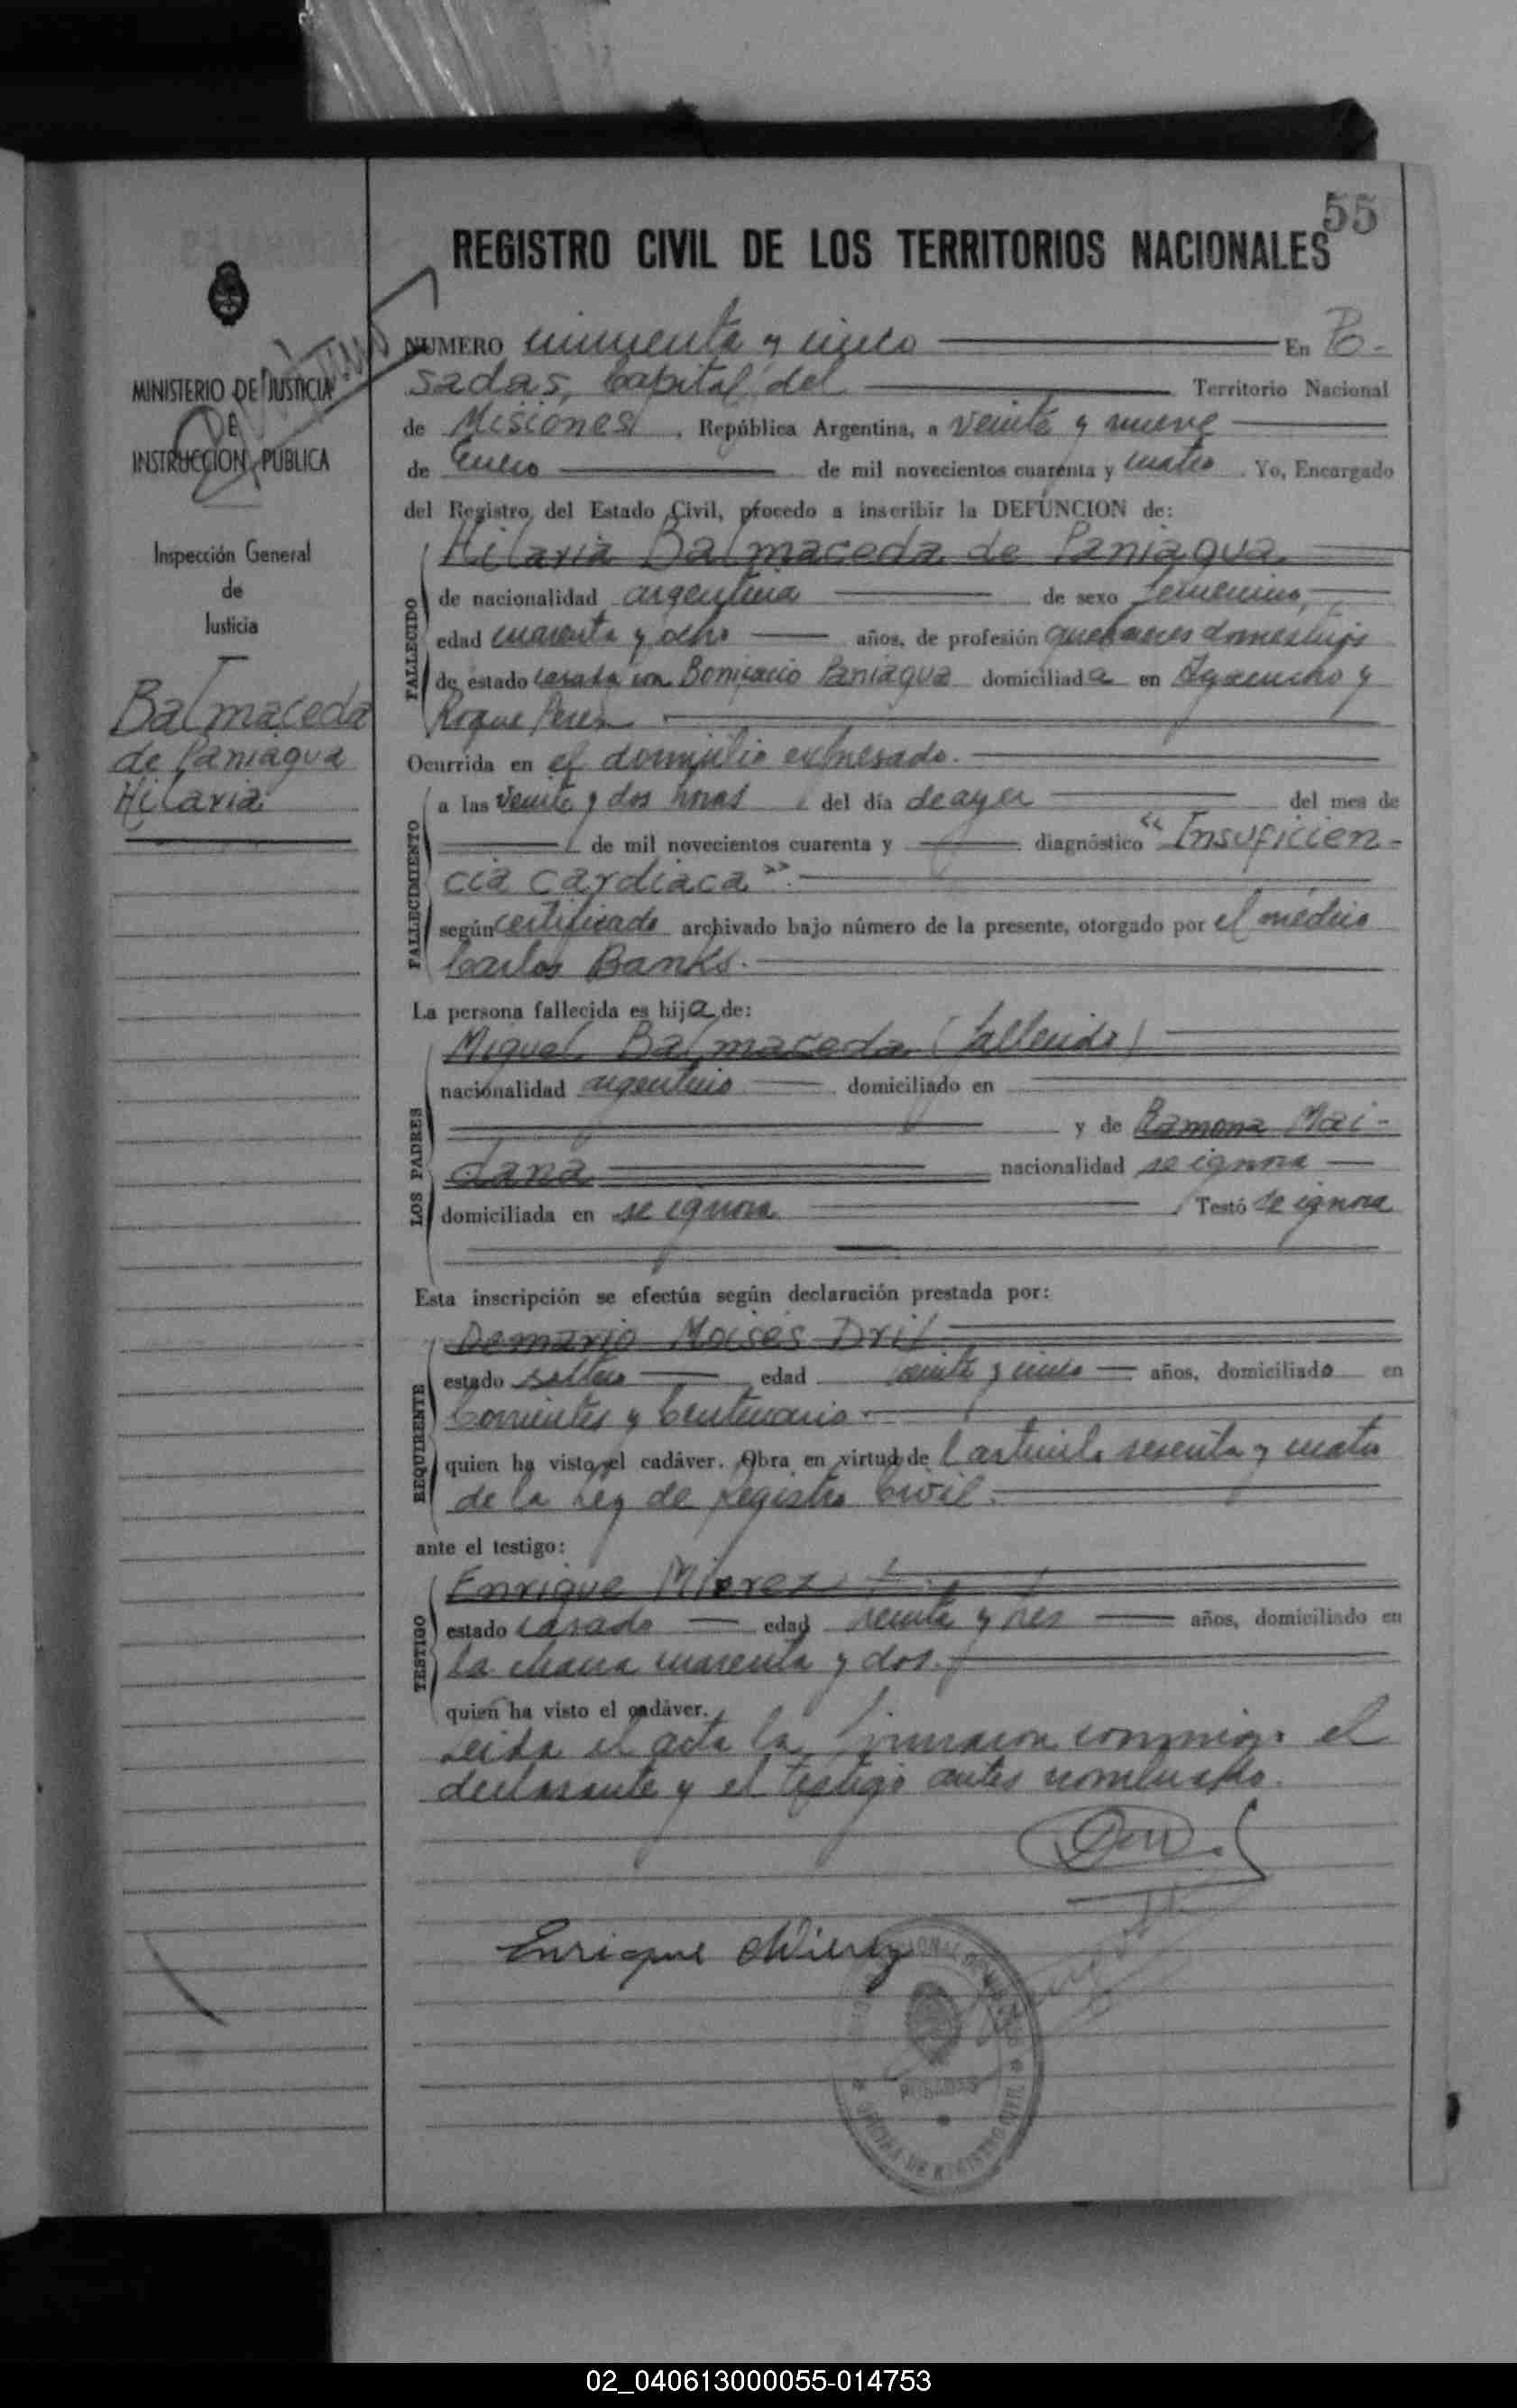 55
REGISTRO CIVIL DE LOS TERRITORIOS NACIONALES
MINISTERIO DE JUSTICIA
DE
INSTRUCCION PUBLICA
Inspección General
de
Justicia
Balmaceda
de Paniagua
Hilaria
NUMERO cincuenta y cinco En Po-
sadas, Capital del Territorio Nacional
de Misiones, República Argentina, a veinte y nueve
de Enero de mil novecientos cuarenta y cuatro. Yo, Encargado
del Registro del Estado Civil, procedo a inscribir la DEFUNCION de:
FALLECIDO
Hilaria Balmaceda de Paniagua
de nacionalidad argentina de sexo femenino,
edad cuarenta y ocho años, de profesión quehaceres domésticos
de estado casada con Bonifacio Paniagua domiciliada en Ayacucho y
Roque Perez
Ocurrida en el domicilio expresado.
FALLECIMIENTO
a las veinte y dos horas del día de ayer del mes de
de mil novecientos cuarenta y diagnóstico "Insuficien-
cia cardiaca".
según certificado archivado bajo número de la presente, otorgado por el médico
Carlos Banks.
La persona fallecida es hija de:
LOS PADRES
Miguel Balmaceda (fallecido)
nacionalidad argentino domiciliado en
y de Ramona Mai-
dana nacionalidad se ignora
domiciliada en se ignora Testó se ignora
Esta inscripción se efectúa según declaración prestada por:
REQUIRENTE
Demario Moisés Dril
estado soltero edad veinte y cinco años, domiciliado en
Corrientes y Centenario.
quien ha visto el cadáver. Obra en virtud de l artículo sesenta y cuatro
de la Ley de Registro Civil.
ante el testigo:
TESTIGO
Enrique Mierez
estado casado edad treinta y tres años, domiciliado en
la chacra cuarenta y dos.
quien ha visto el cadáver.
Leida el acta la firmaron conmigo el
declarante y el testigo antes nombrado.
Enrique Mierez
POSADAS
OFICINA DE REGISTRO CIVIL
02_040613000055-014753